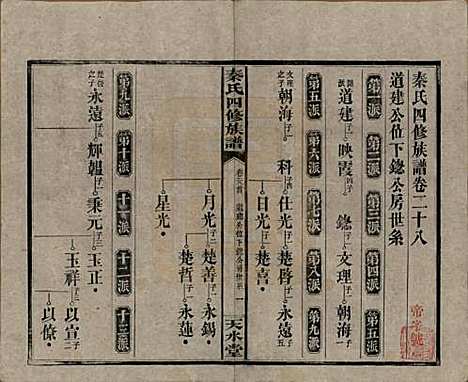 秦氏四修族譜卷二十八
道建公位下鐩公房世系
第一派 第二派 第三派 第四派 第五派
道建 映霞 鐩 文理 朝海
第五派 第六派 第七派 第八派 第九派
文理之子 朝海 科 仕光 楚啓 永遠
日光 楚喜
月光 楚善 永錫
楚哲 永蓮
星光
秦氏四修族譜
天水堂
第九派 第十派 十一派 十二派 十三派
楚啓之子 永遠 輝韞 乘元 玉正
玉祥 以宣
以僚